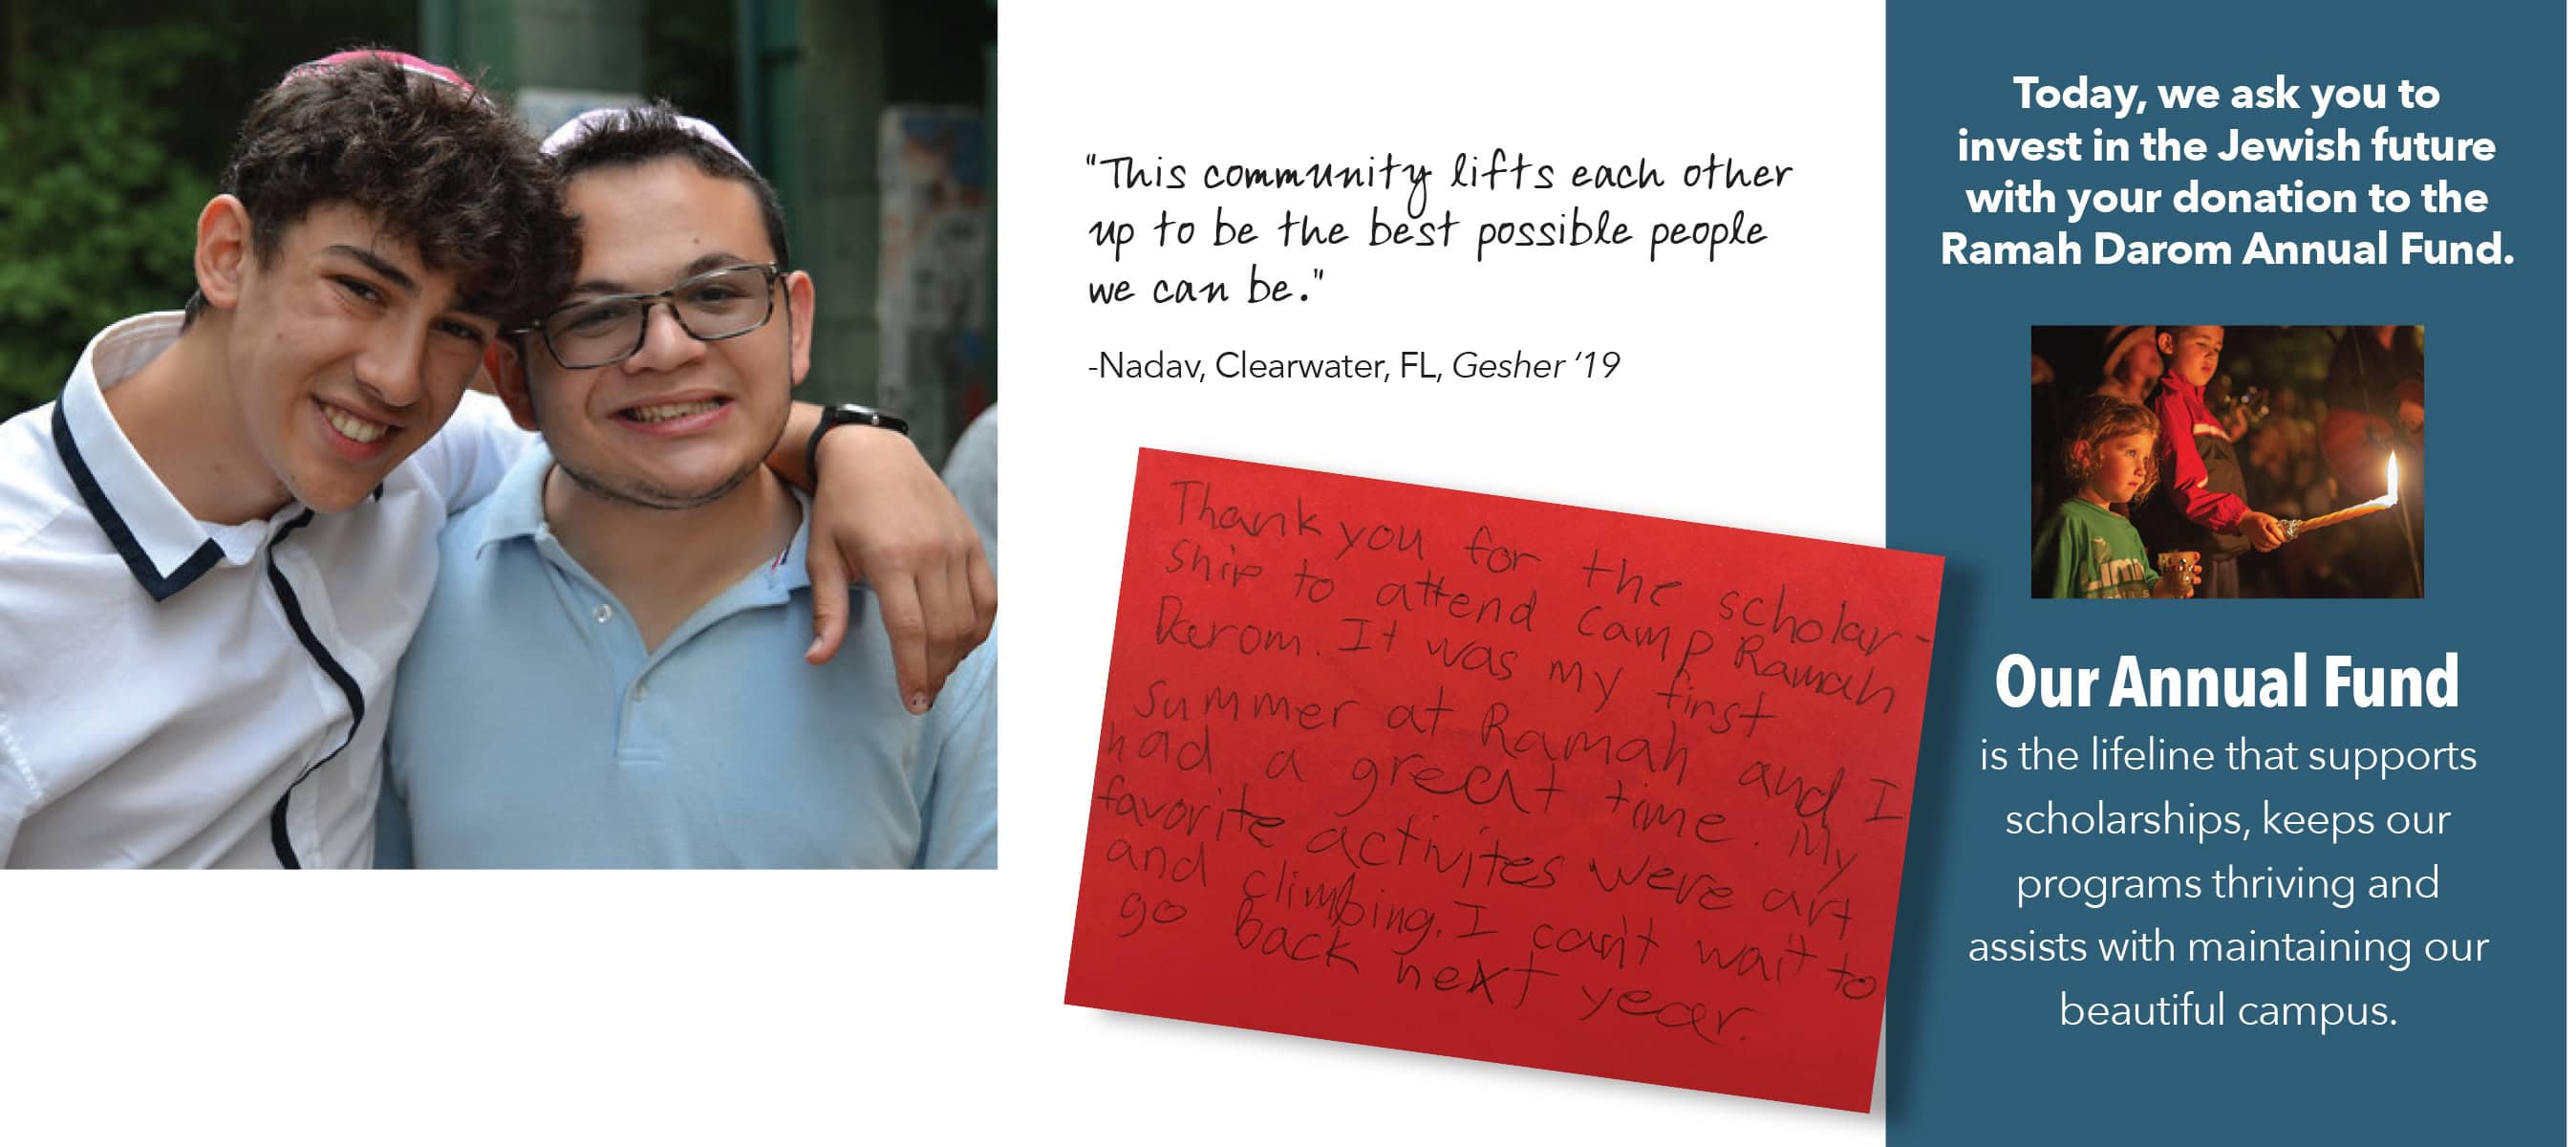 "This community lifts each other
up to be the best possible people
we can be."
-Nadav, Clearwater, FL, Gesher '19
Thank you for the scholar-
ship to attend Camp Ramah
Darom. It was my first
summer at Ramah and I
had a great time. My
favorite activites were art
and climbing. I can't wait to
go back next year.
Today, we ask you to
invest in the Jewish future
with your donation to the
Ramah Darom Annual Fund.
Our Annual Fund
is the lifeline that supports
scholarships, keeps our
programs thriving and
assists with maintaining our
beautiful campus.